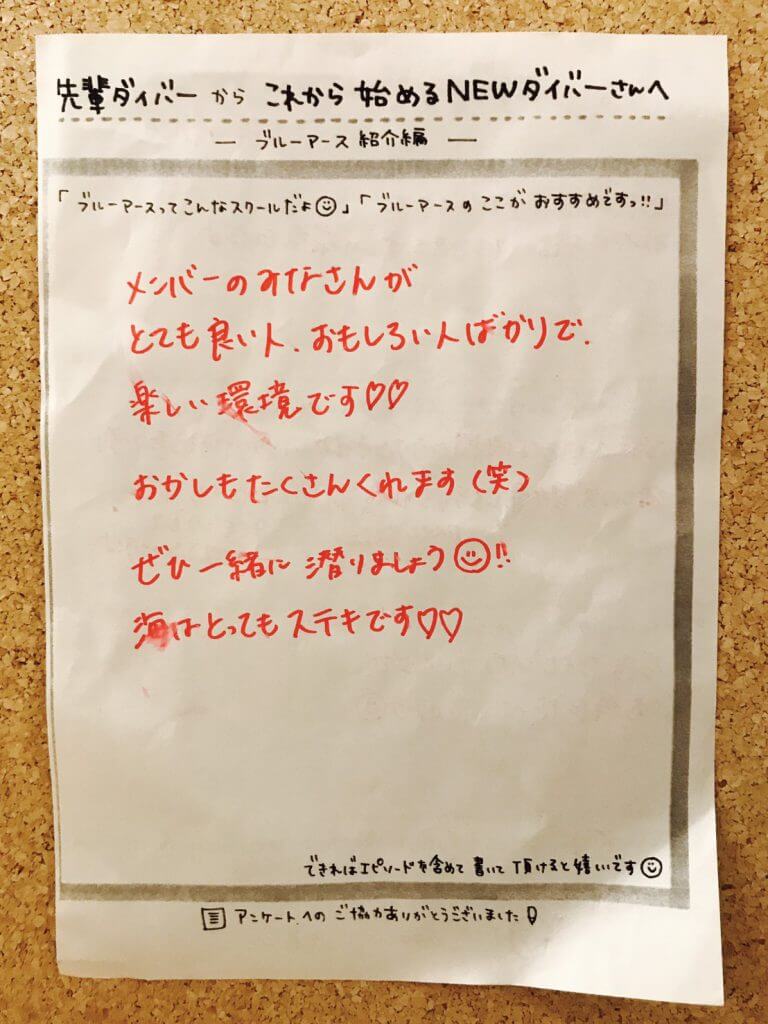 先輩ダイバー から これから 始めるNEWダイバーさんへ
— ブルーアース 紹介編 —
「ブルーアースってこんなスクールだよ☺」「ブルーアースの ここが おすすめですっ!!」
メンバーのみなさんが
とても良い人、おもしろい人ばかりで、
楽しい環境です♡♡
おかしもたくさんくれます(笑)
ぜひ一緒に潜りましょう☺!!
海はとってもステキです♡♡
できればエピソードを含めて 書いて 頂けると嬉しいです☺
アンケートへの ご協力ありがとうございました